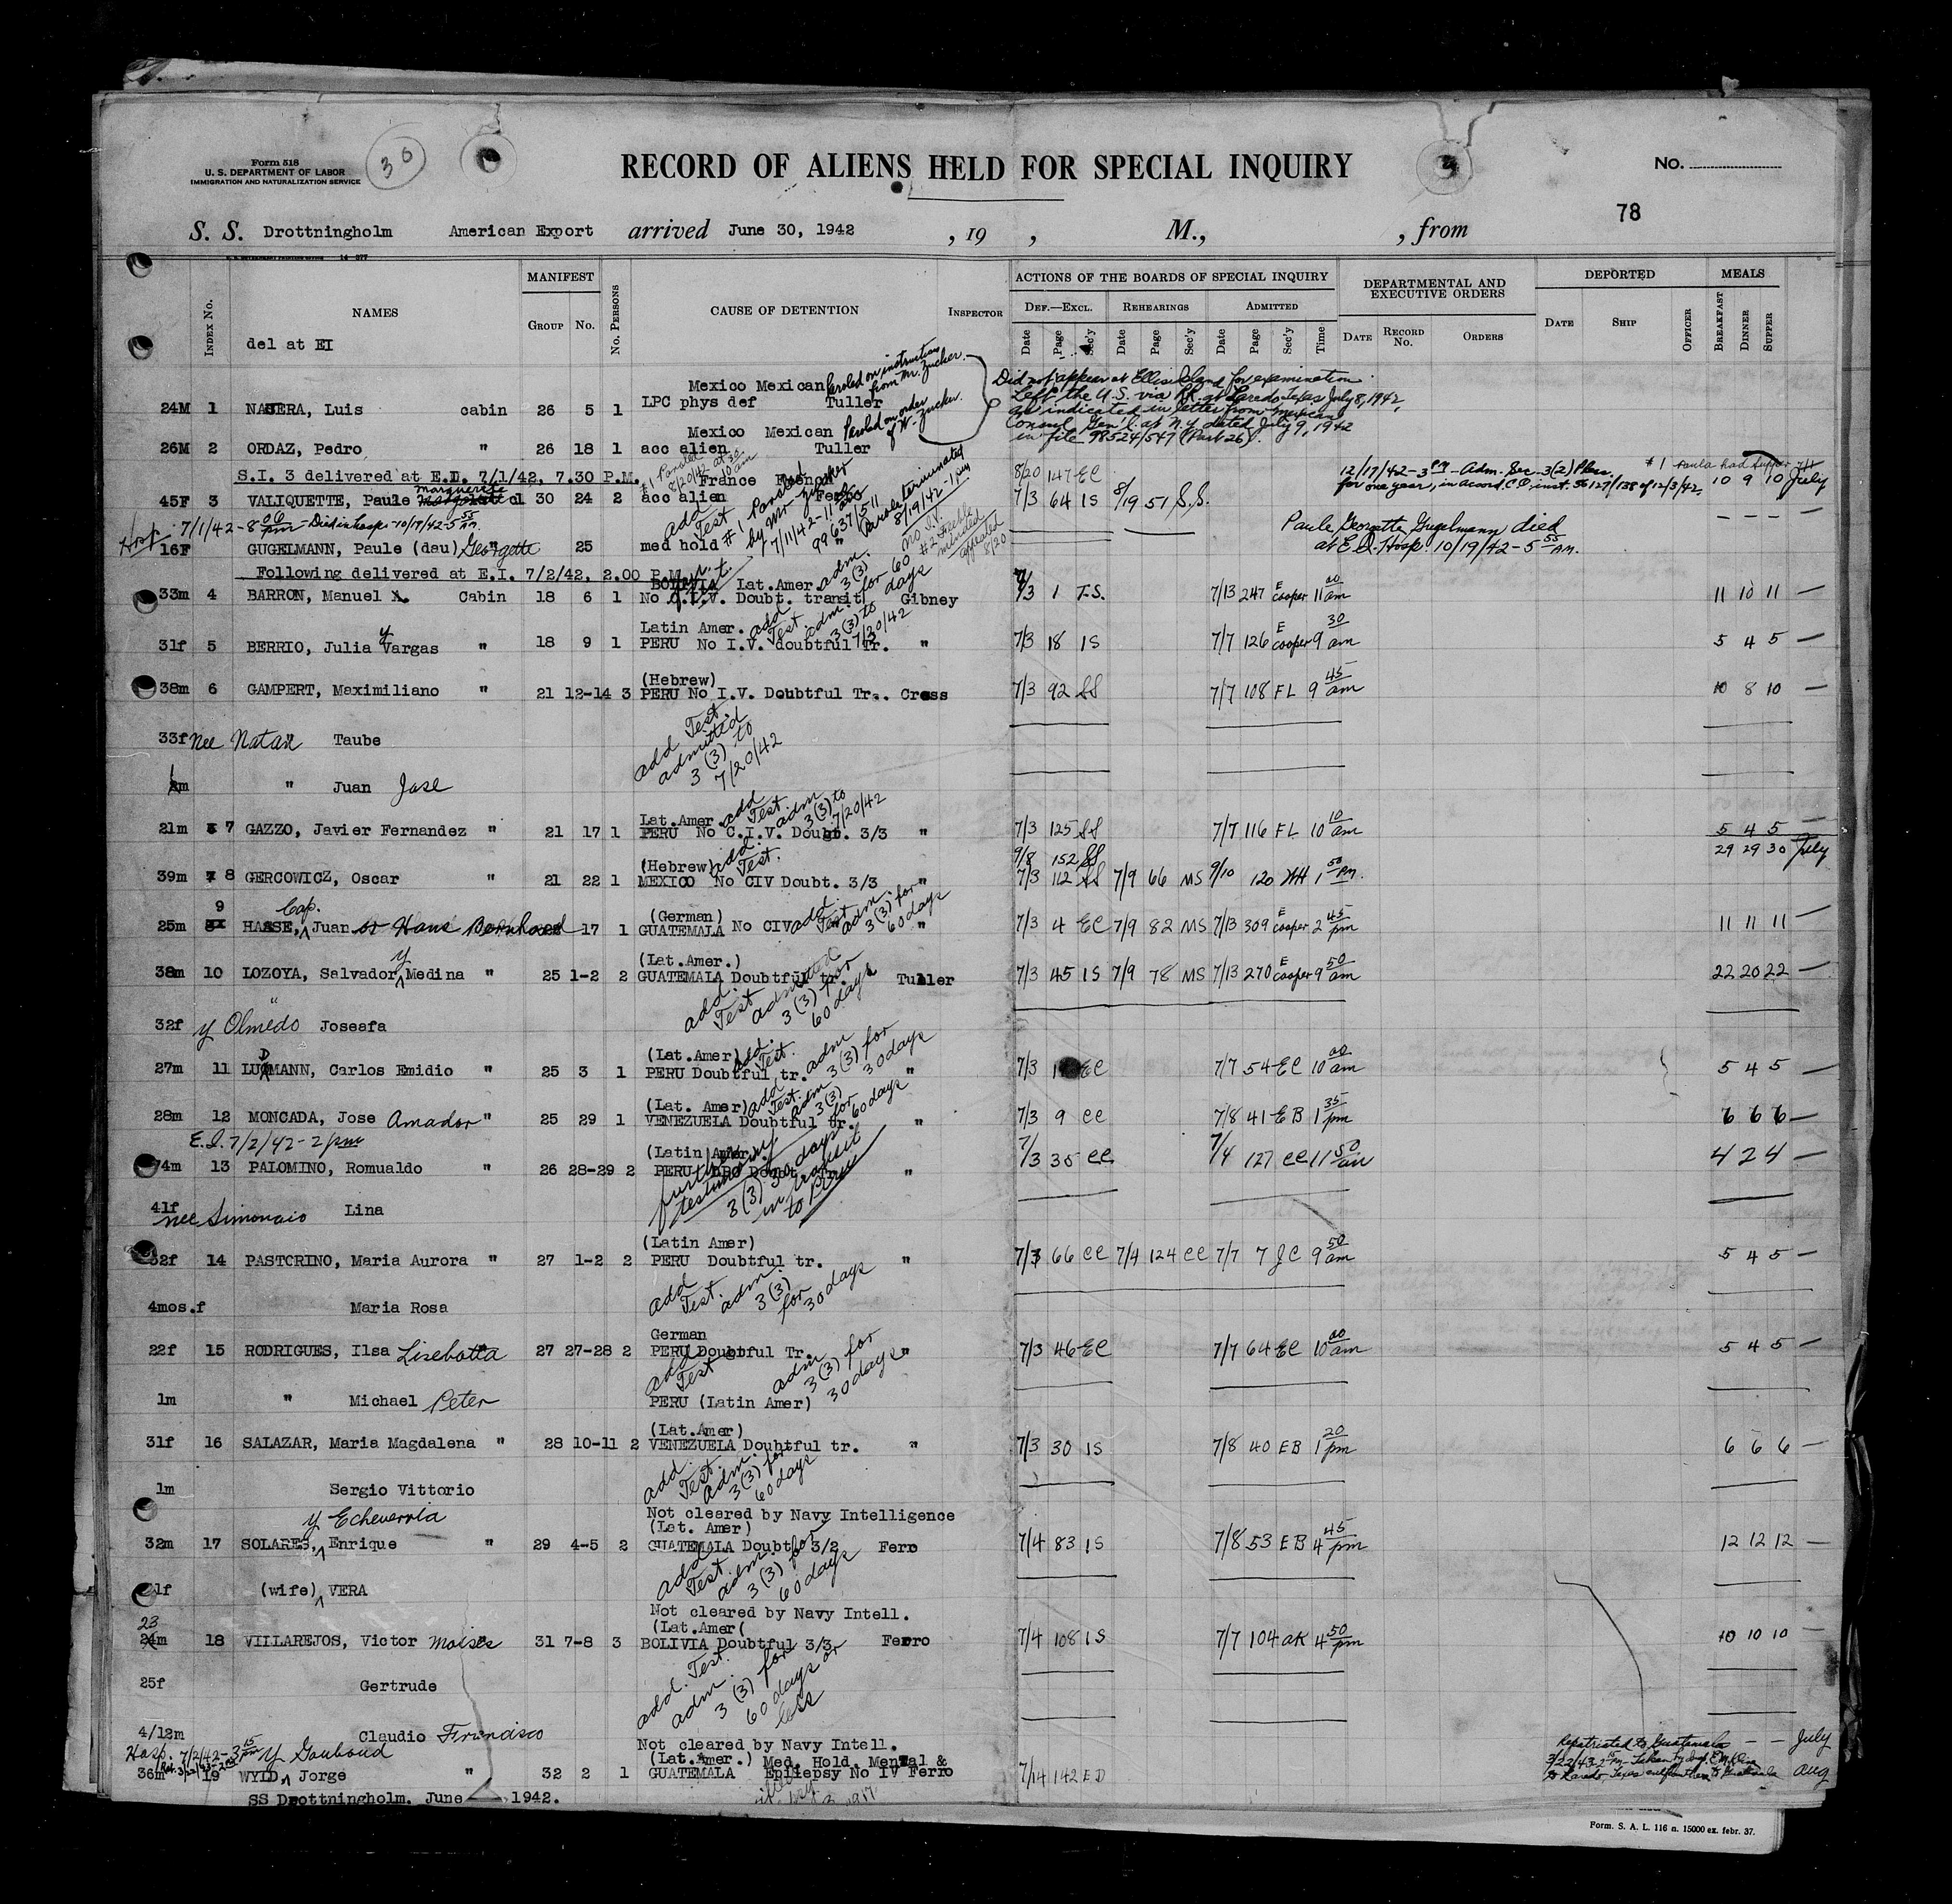 Form 518
U. S. DEPARTMENT OF LABOR
IMMIGRATION AND NATURALIZATION SERVICE
30
RECORD OF ALIENS HELD FOR SPECIAL INQUIRY
No.
78
S. S. Drottningholm American Export arrived June 30, 1942 , 19 , M., , from
Index No. NAMES MANIFEST Group No. No. Persons CAUSE OF DETENTION Inspector
ACTIONS OF THE BOARDS OF SPECIAL INQUIRY
Def.—Excl. Rehearings Admitted
Date Page Sec'y Date Page Sec'y Date Page Sec'y Time
DEPARTMENTAL AND EXECUTIVE ORDERS
Date Record No. Orders
DEPORTED
Date Ship Officer
MEALS
Breakfast Dinner Supper
del at EI
Mexico Mexican Paroled on instructions from Mr. Zucker.
24M 1 NAJERA, Luis cabin 26 5 1 LPC phys def Tuller
Did not appear at Ellis Island for examination
Left the U.S. via RR. at Laredo Texas July 8, 1942,
as indicated in letter from Mexican
Consul Gen'l. at N.Y. dated July 9, 1942
in file 98524/547 (Part 26).
Mexico Mexican Paroled on order of W. Zucker.
26M 2 ORDAZ, Pedro " 26 18 1 acc alien Tuller
S.I. 3 delivered at E.I. 7/1/42, 7.30 P.M. France French
#1 Paroled 8/20/42 at 10 am
8/20 147 EC
45F 3 VALIQUETTE, Paule Marguerite 30 24 2 acc alien Ferro 7/3 64 IS 8/19 51 S.S.
12/17/42-3 PM-Adm. Sec. 3(2) Plan
for one year, in acord. C.O. inst. 56127/138 of 12/3/42.
#1 Paula had supper 7/1
10 9 10 July
add Test #1 Paroled by Mr. Zucker 7/11/42-11 99637/511
Parole terminated 8/19/42-1 pm
Hosp. 7/1/42-8 00 pm-Died in hosp-10/19/42-5 55 am.
16F GUGELMANN, Paule (dau) Georgette 25 med hold "
no I.V. #2 feeble minded appealed 8/20
Paule Georgette Gugelmann died
at E.I. Hosp. 10/19/42-5 55 AM.
Following delivered at E.I. 7/2/42, 2.00 P.M.
BOLIVIA Lat.Amer. adm 3(3) for 60 days
33m 4 BARRON, Manuel Cabin 18 6 1 No C.I.V. Doubt. transit Gibney 7/3 1 T.S. 7/13 247 E Cooper 11 00 am 11 10 11
Latin Amer. add Test. adm. 3(3) to 7/20/42
31f 5 BERRIO, Julia y Vargas " 18 9 1 PERU No I.V. doubtful Tr. " 7/3 18 IS 7/7 126 E Cooper 9 30 am 5 4 5
(Hebrew)
38m 6 GAMPERT, Maximiliano " 21 12-14 3 PERU No I.V. Doubtful Tr.. Cross 7/3 92 SS 7/7 108 FL 9 45 am 10 8 10
33f nee Natan " Taube
add Test. admitted 3(3) to 7/20/42
1m " Juan Jose
Lat.Amer. add Test. adm 3(3) to 7/20/42
21m 7 GAZZO, Javier Fernandez " 21 17 1 PERU No C.I.V. Doubt. 3/3 " 7/3 125 SS 7/7 116 FL 10 10 am 5 4 5
(Hebrew) add. Test. 9/8 152 SS 29 29 30 July
39m 8 GERCOWICZ, Oscar " 21 22 1 MEXICO No CIV Doubt. 3/3 " 7/3 112 SS 7/9 66 MS 9/10 120 WH 1 50 PM.
9 Cap. (German) add. Test adm 3(3) for 60 days
25m HAASE, Juan or Hans Bernhard 17 1 GUATEMALA No CIV " 7/3 4 EC 7/9 82 MS 7/13 309 E Cooper 2 45 pm 11 11 11
(Lat.Amer.)
38m 10 LOZOYA, Salvador y Medina " 25 1-2 2 GUATEMALA Doubtful tr. Tuller 7/3 45 IS 7/9 78 MS 7/13 270 E Cooper 9 50 am 22 20 22
add. Test admitted 3(3) for 60 days
32f y Olmedo " Josefa
(Lat.Amer) add. Test. adm 3(3) for 30 days
27m 11 LUDMANN, Carlos Emidio " 25 3 1 PERU Doubtful tr. " 7/3 1 EC 7/7 54 EC 10 00 am 5 4 5
(Lat. Amer) add Test. adm 3(3) for 60 days
28m 12 MONCADA, Jose Amador " 25 29 1 VENEZUELA Doubtful tr. " 7/3 9 CC 7/8 41 EB 1 35 pm 6 6 6
E.I. 7/2/42-2 pm
(Latin Amer.)
74m 13 PALOMINO, Romualdo " 26 28-29 2 PERU LPC Doubt. Tr. " 7/3 35 CC 7/4 127 CC 11 50 am 4 2 4
further testimony 3(3) 30 days in transit to Peru
41f nee Simonaio Lina
(Latin Amer)
32f 14 PASTORINO, Maria Aurora " 27 1-2 2 PERU Doubtful tr. " 7/3 66 CC 7/4 124 CC 7/7 7 JC 9 50 am 5 4 5
add Test. adm. 3(3) for 30 days
4mos.f Maria Rosa
German
22f 15 RODRIGUES, Ilsa Liselotta 27 27-28 2 PERU Doubtful Tr. " 7/3 46 EC 7/7 64 EC 10 00 am 5 4 5
add Test adm 3(3) for 30 days
1m " Michael Peter PERU (Latin Amer)
(Lat.Amer)
31f 16 SALAZAR, Maria Magdalena " 28 10-11 2 VENEZUELA Doubtful tr. " 7/3 30 IS 7/8 40 EB 1 20 pm 6 6 6
add. Test. adm. 3(3) for 60 days
1m Sergio Vittorio
Not cleared by Navy Intelligence
y Echeverria (Lat. Amer)
32m 17 SOLARES, Enrique " 29 4-5 2 GUATEMALA Doubt. 3/2 Ferro 7/4 83 IS 7/8 53 EB 4 45 pm 12 12 12
add Test. adm. 3(3) for 60 days
1f (wife) VERA
Not cleared by Navy Intell.
23 (Lat.Amer(
18 VILLAREJOS, Victor Moises 31 7-8 3 BOLIVIA Doubtful 3/3 Ferro 7/4 108 IS 7/7 104 AK 4 50 pm 10 10 10
add. Test. adm. 3(3) for 60 days or less
25f Gertrude
4/12m Claudio Francisco
Not cleared by Navy Intell.
Hosp. 7/2/42-3 15 pm y Gouboud
(Lat.Amer.) Med. Hold, Mental &
36m 19 WYLD, Jorge " 32 2 1 GUATEMALA Epilepsy No IV Ferro 7/14 142 ED
Repatriated to Guatemala — — July
to Laredo, Texas Aug
SS Drottningholm, June 1942.
Form. S. A. L. 116 n. 15000 ex. febr. 37.